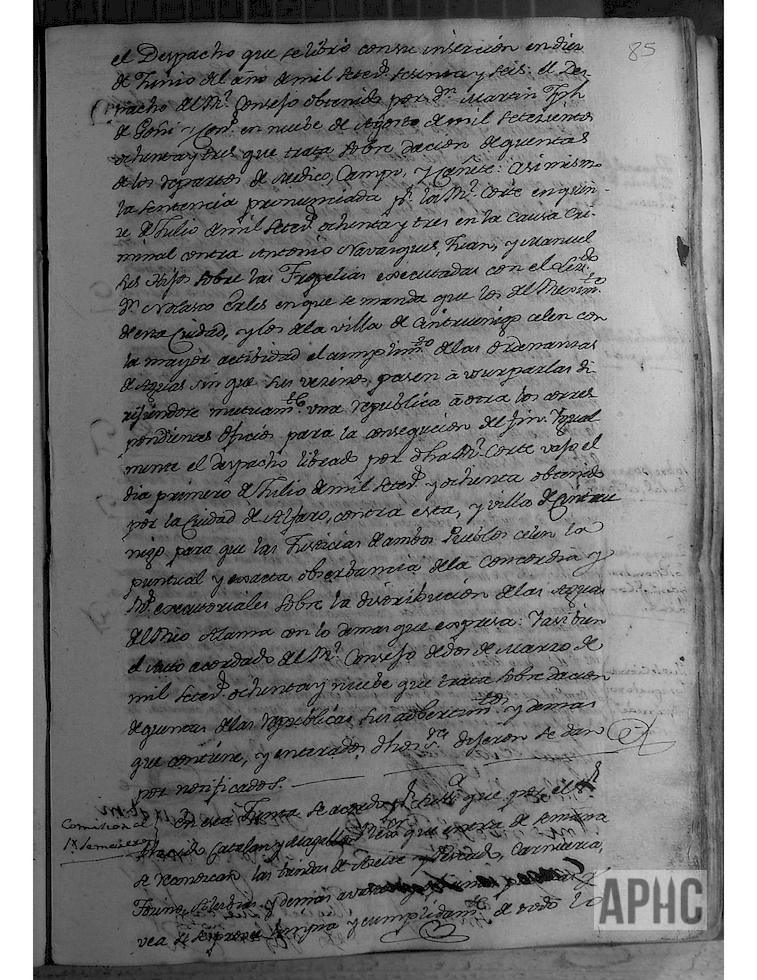 85
el Despacho que se libró con su inserción en diez
de Junio del año de mil Seted. sesenta y seis: el Des-
pacho del Rl. Consejo obtenido por Dn. Martin Jph
de Goñi y Con. en nueve de Agosto de mil Setezientos
ochenta y tres que trata sobre dación de quentas
de los repartos de Medico, Campo, y Cañete: asimismo
la sentencia pronunciada pr. la Rl. Corte en quin-
ze de Julio de mil Seted. ochenta y tres en la causa Cri-
minal contra Antonio Navasques, Juan, y Manuel
sus Hijos sobre las Tropelias executadas con el Lizdo.
Dn. Nolasco en que se manda que los del Rexim.to
de esta Ciudad, y los de la villa de Cintruenigo celen con
la mayor actibidad el cumplim.to de las ordenanzas
de Aguas sin que sus vezinos pasen â usurparlas di-
rijiendose mutuam.te una republica â otra los corres
pondientes oficios para la consecucion del fin. Igual
mente el despacho librado por dha Rl. Corte vajo el
dia primero de Julio de mil Seted. y ochenta obtenido
por la Ciudad de Alfaro, contra esta, y villa de Cintrue
nigo para que las Justicias de ambos Pueblos celen la
puntual y exacta obserbancia de la Concordia y
Rs. executoriales sobre la distribucion de las Aguas
del Rio Alama con lo demas que expresa: Y asi bien
el Auto acordado del Rl. Consejo de dos de Marzo de
mil Seted. ochenta y nuebe que trata sobre dacion
de quentas de las republicas sus adbertim.tos y demas
que contiene, y enterados dhos Srs. dijeron se dan
por notificados.
En esta Junta se acordó pr. sus que por el Sr.
Comision al
Rx. semanero
Catalan y que entra de semana
se reconozcan las tiendas de Aceite y Pescado, Carniceria,
Tozino, y demas
vea se limpia y cumplidam.te de todo lo
APHC